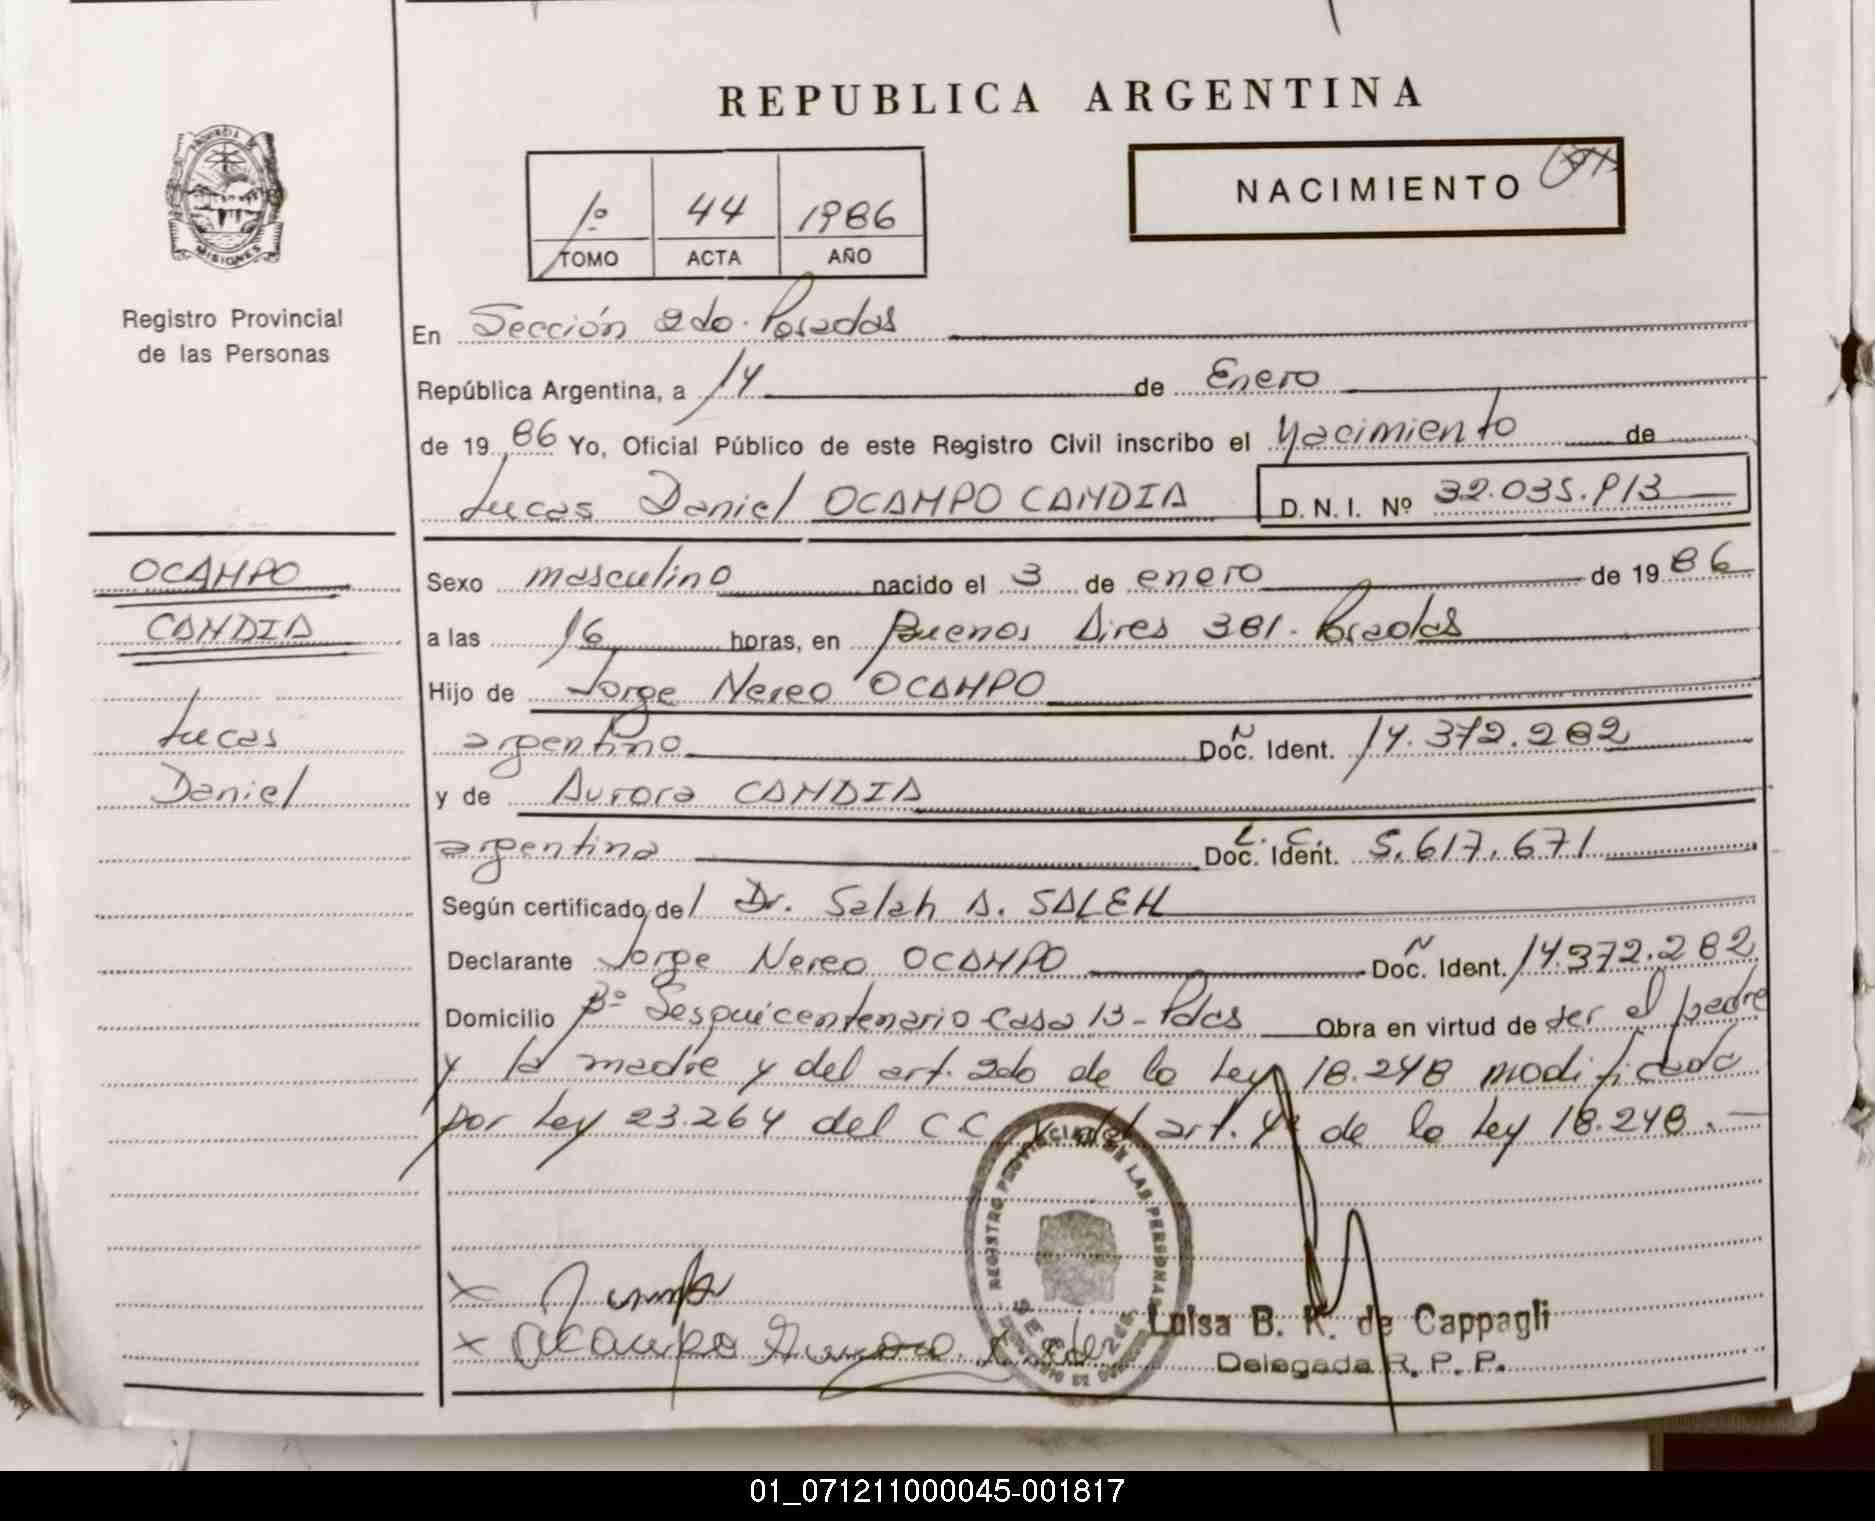 REPUBLICA ARGENTINA
PROVINCIA DE MISIONES
Registro Provincial
de las Personas
1º 44 1986
TOMO ACTA AÑO
NACIMIENTO
En Sección 2do. Posadas
República Argentina, a 14 de Enero
de 1986 Yo, Oficial Público de este Registro Civil inscribo el Nacimiento de
Lucas Daniel OCAMPO CANDIA D. N. I. Nº 32.035.913
OCAMPO
CANDIA
Lucas
Daniel
Sexo masculino nacido el 3 de enero de 1986
a las 16 horas, en Buenos Aires 381 - Posadas
Hijo de Jorge Nereo OCAMPO
argentino Doc. Ident. 14.372.282
y de Aurora CANDIA
argentina L. C. Doc. Ident. 5.617.671
Según certificado del Dr. Salah A. SALEH
Declarante Jorge Nereo OCAMPO Doc. Ident. 14.372.282
Domicilio Bº Sesquicentenario Casa 13 - Pdas Obra en virtud de ser el padre
y la madre y del art. 2do de la Ley 18.248 modificado
por Ley 23.264 del C.C. y del art. 4º de la Ley 18.248.
REGISTRO PROVINCIAL DE LAS PERSONAS
x
x Ocampo Aurora C. de
Luisa B. K. de Cappagli
Delegada R. P. P.
01_071211000045-001817